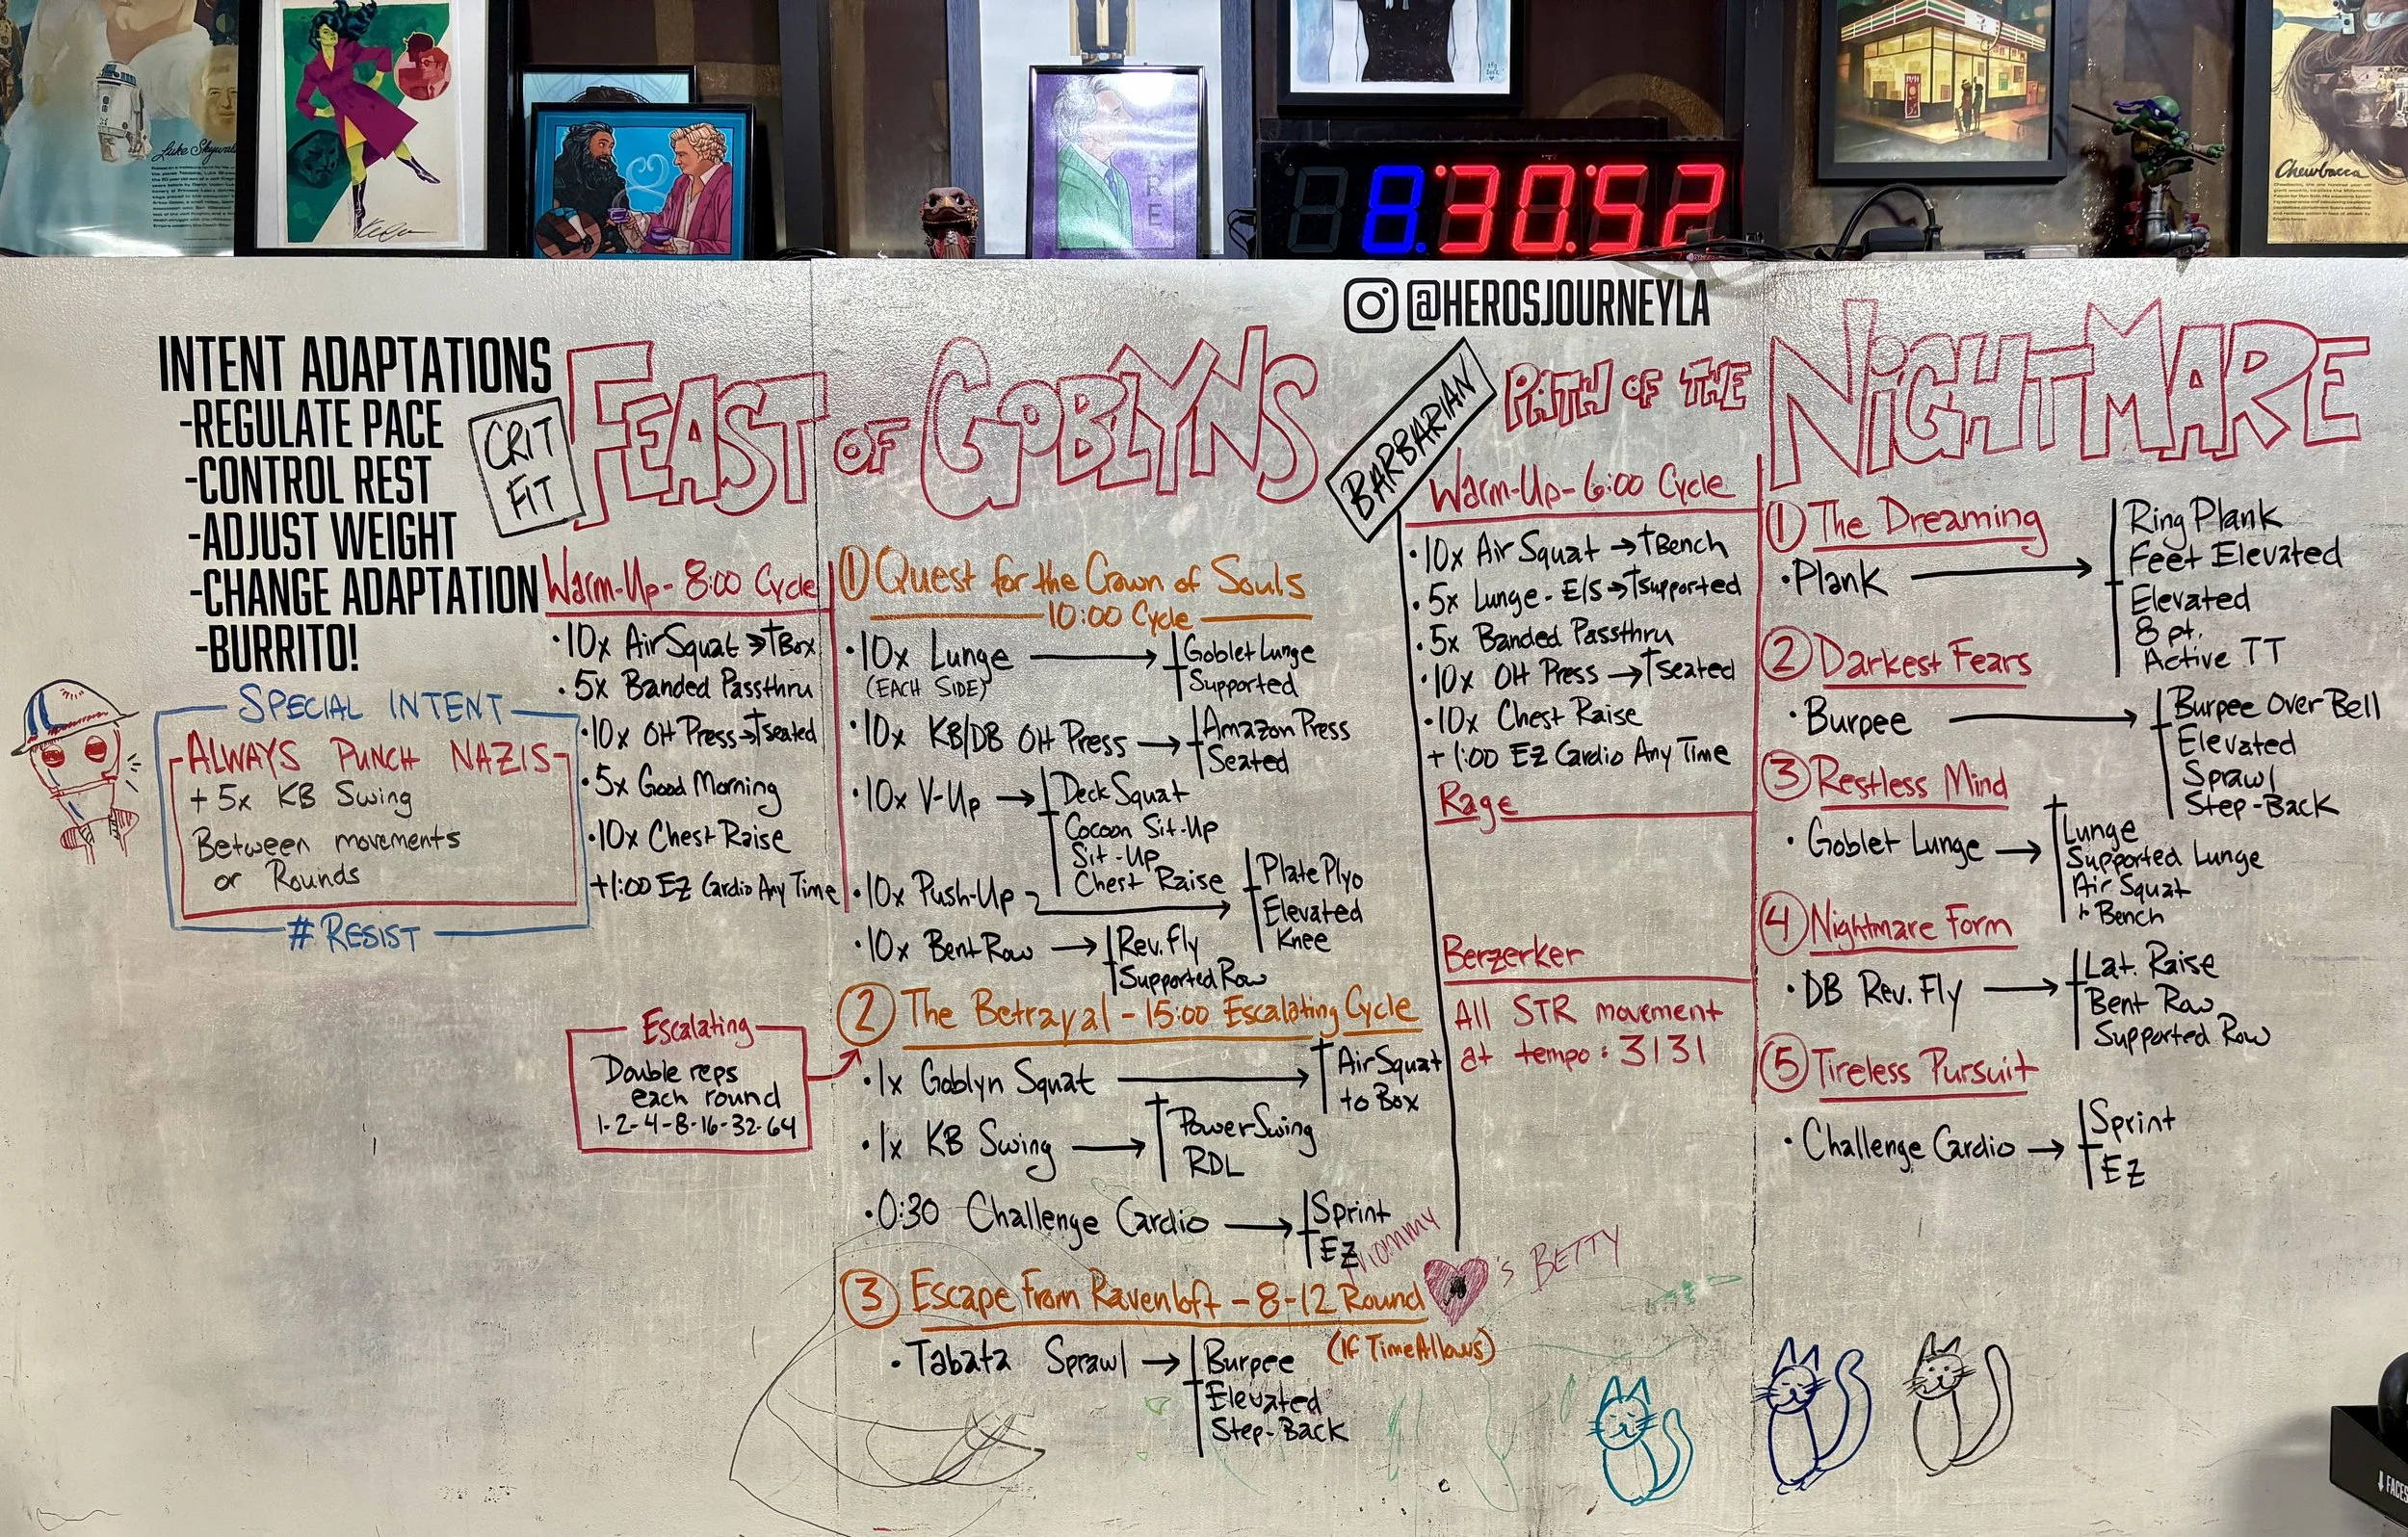 Luke Skywal
8:30:52
Chewbacca
@HEROSJOURNEYLA
INTENT ADAPTATIONS
-REGULATE PACE
-CONTROL REST
-ADJUST WEIGHT
-CHANGE ADAPTATION
-BURRITO!
SPECIAL INTENT
ALWAYS PUNCH NAZIS
+ 5x KB Swing
Between movements
or Rounds
# RESIST
CRIT
FIT
FEAST OF GOBLYNS
Warm-Up - 8:00 Cycle
• 10x Air Squat → ↑Box
• 5x Banded Passthru
• 10x OH Press → ↑seated
• 5x Good Morning
• 10x Chest Raise
+1:00 EZ Cardio Any Time
Escalating
Double reps
each round
1-2-4-8-16-32-64
① Quest for the Crown of Souls
10:00 Cycle
• 10x Lunge →
(EACH SIDE)
Goblet Lunge
Supported
• 10x KB/DB OH Press →
Amazon Press
Seated
• 10x V-Up →
Deck Squat
Cocoon Sit-Up
Sit-Up
Chest Raise
• 10x Push-Up →
Plate Plyo
Elevated
Knee
• 10x Bent Row →
Rev. Fly
Supported Row
② The Betrayal - 15:00 Escalating Cycle
• 1x Goblyn Squat →
Air Squat
to Box
• 1x KB Swing →
Power Swing
RDL
• 0:30 Challenge Cardio →
Sprint
EZ
③ Escape From Ravenloft - 8-12 Round
(If Time Allows)
• Tabata Sprawl →
Burpee
Elevated
Step-Back
mommy
's BETTY
BARBARIAN
PATH OF THE NIGHTMARE
Warm-Up - 6:00 Cycle
• 10x Air Squat → ↑Bench
• 5x Lunge - E/S → ↑supported
• 5x Banded Passthru
• 10x OH Press → ↑seated
• 10x Chest Raise
+ 1:00 EZ Cardio Any Time
Rage
Berzerker
All STR movement
at tempo: 3131
① The Dreaming
• Plank →
Ring Plank
Feet Elevated
Elevated
8 pt.
Active TT
② Darkest Fears
• Burpee →
Burpee Over Bell
Elevated
Sprawl
Step-Back
③ Restless Mind
• Goblet Lunge →
Lunge
Supported Lunge
Air Squat
Bench
④ Nightmare Form
• DB Rev. Fly →
Lat. Raise
Bent Row
Supported Row
⑤ Tireless Pursuit
• Challenge Cardio →
Sprint
EZ